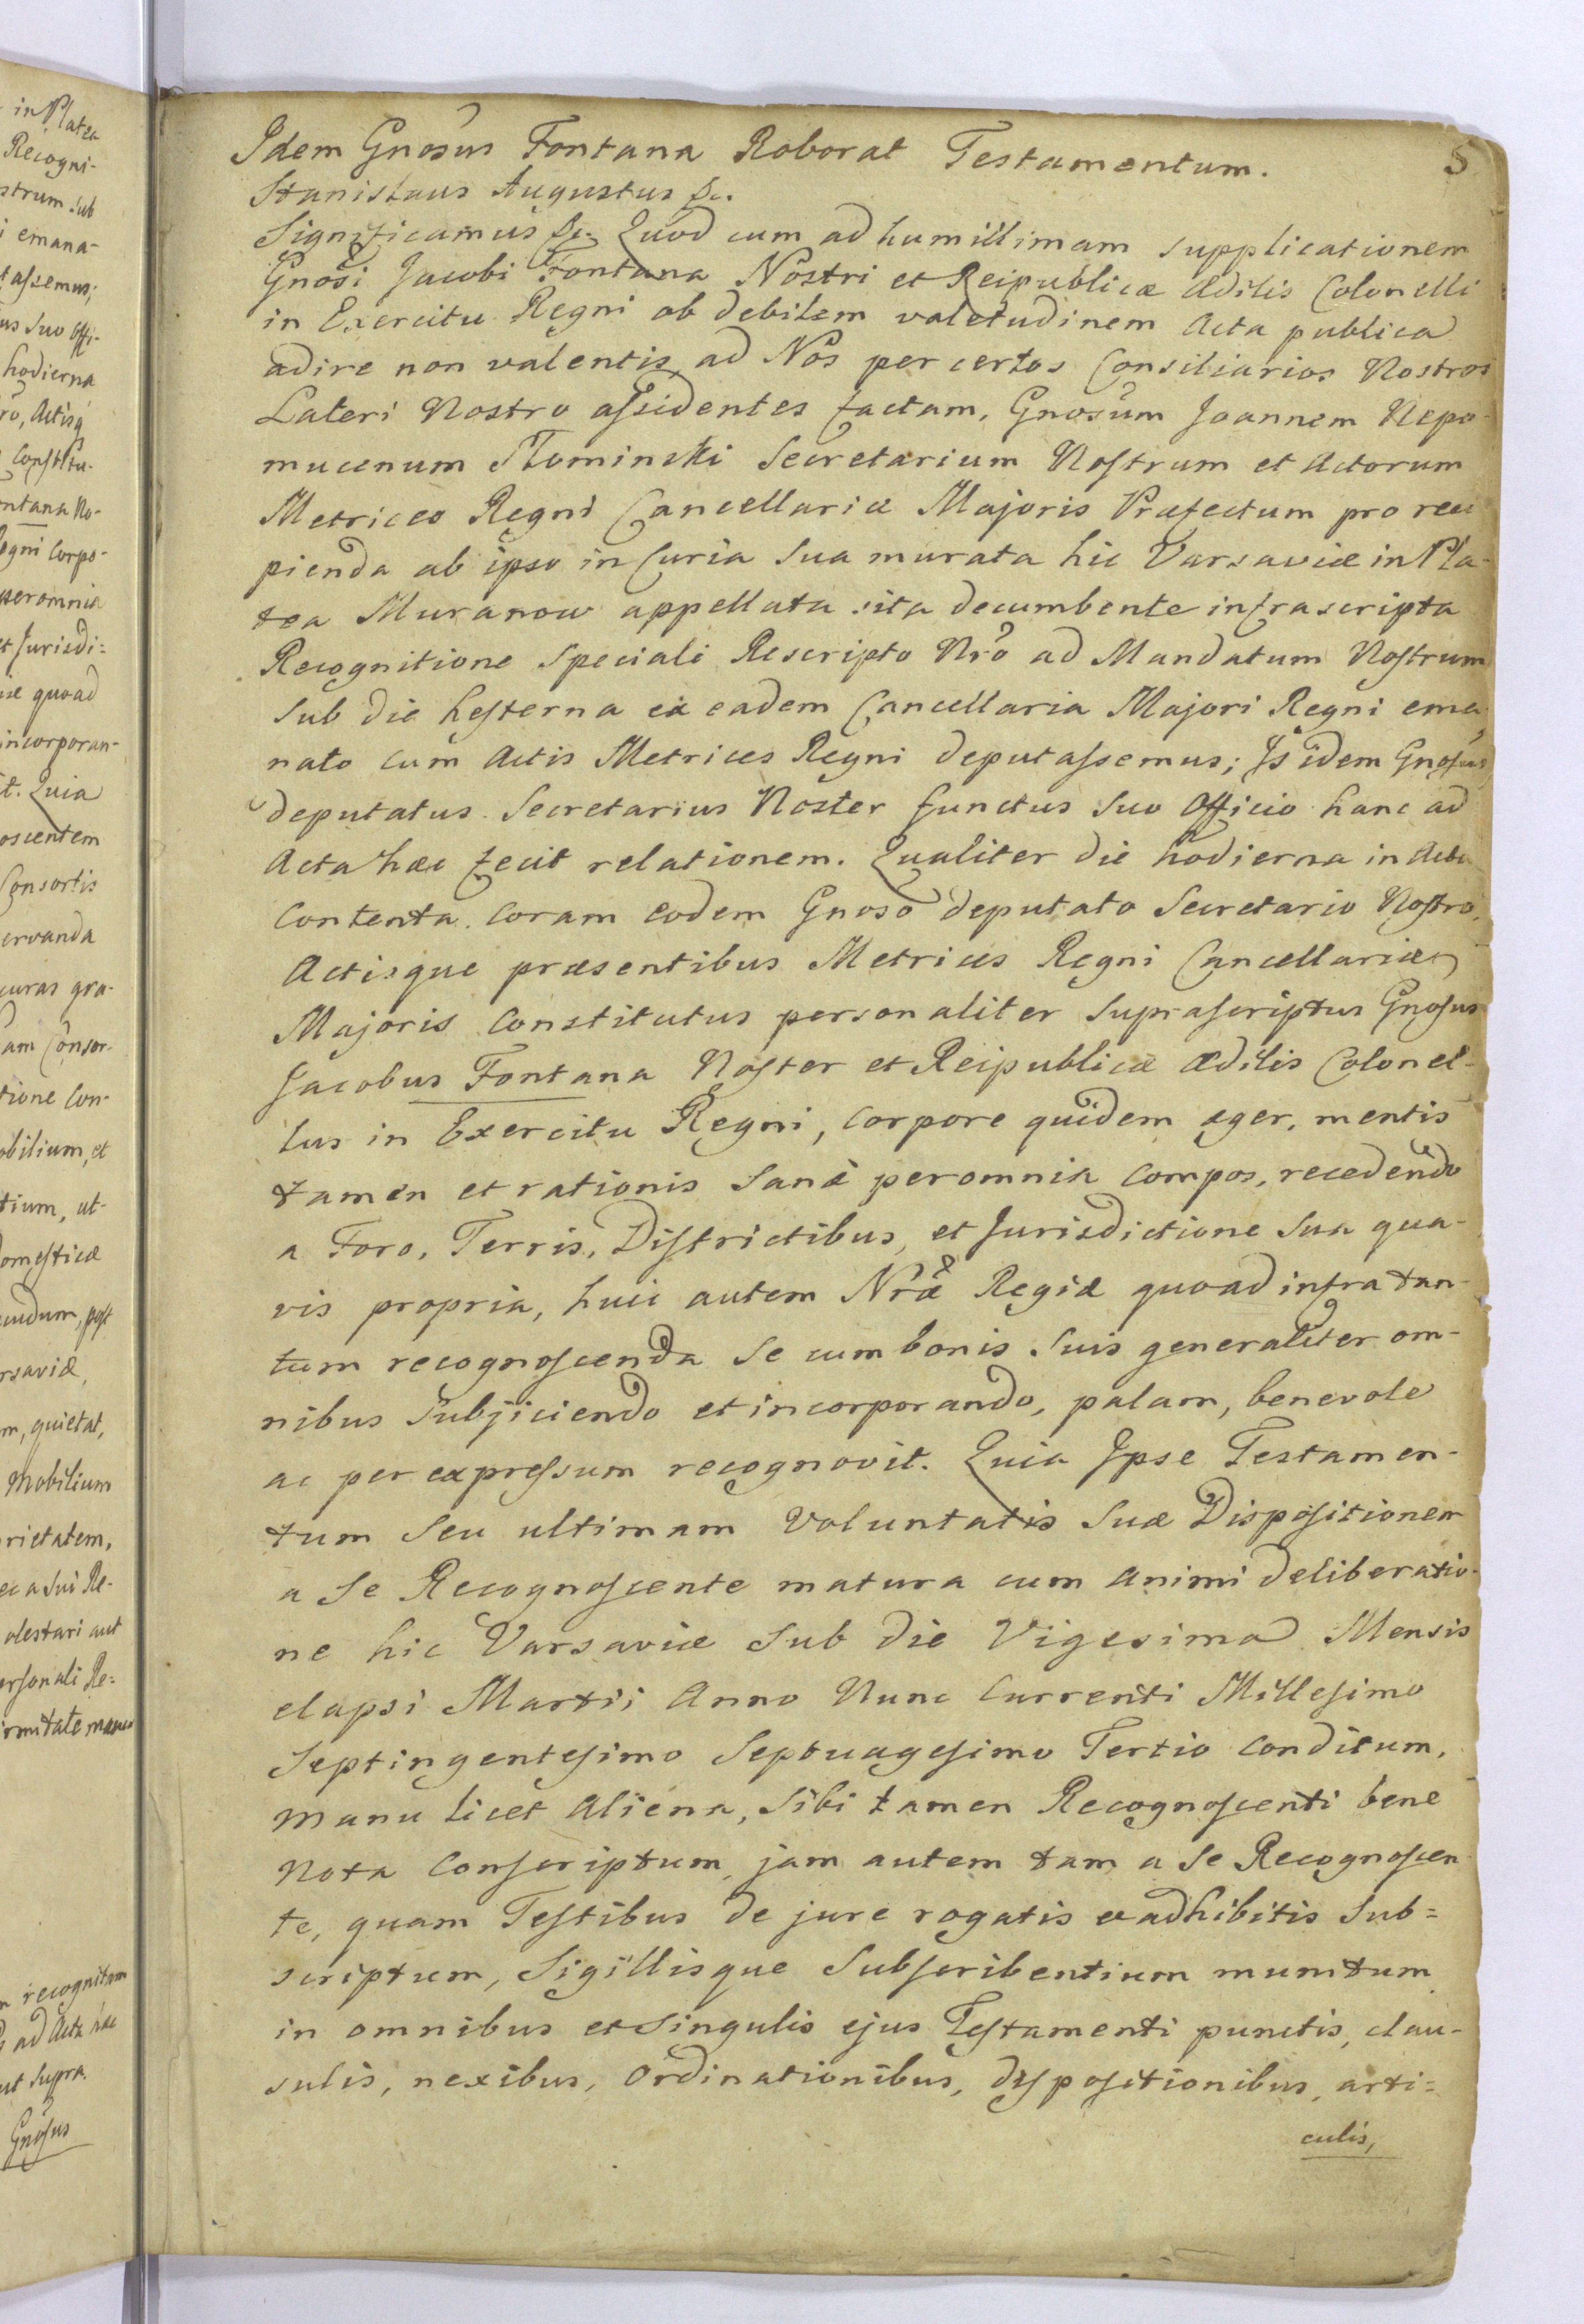 in Platea
Recogni-
strum sub
i emana-
tassemus;
us suo Offi-
hodierna
ro, Actisq
Constitu-
ntana No-
egni Corpo-
peromnia
et Jurisdi=
quoad
incorporan-
t. Quia
oscentem
Consortis
ervanda
curas gra-
am Consor-
tione Con-
obilium, et
tium, ut-
omesticæ
post
rsaviæ,
m, quietat,
Mobilium
rietatem,
ec a sui Re-
olestari aut
ersonali Re=
recognitam
ad Acta hæc
ut supra.
Gnosus
5
Idem Gnosus Fontana Roborat Testamentum.
Stanislaus Augustus &c.
Significamus &c. Quod cum ad humillimam supplicationem
Gnosi Jacobi Fontana Nostri et Reipublicæ Ædilis Colonelli
in Exercitu Regni ob debilem valetudinem Acta publica
adire non valentis, ad Nos per certos Consiliarios Nostros
Lateri Nostro assidentes factam, Gnosum Joannem Nepo-
mucenum Słominski Secretarium Nostrum et Actorum
Metrices Regni Cancellariæ Majoris Præfectum pro reci
pienda ab ipso in Curia sua murata hic Varsaviæ in Pla-
tea Muranow appellata sita decumbente infrascripta
Recognitione speciali Rescripto Nro ad Mandatum Nostrum
sub die hesterna ex eadem Cancellaria Majori Regni ema
nato cum Actis Metrices Regni deputassemus; Is idem Gnosus
deputatus Secretarius Noster functus suo Officio hanc ad
Acta hæc fecit relationem. Qualiter die hodierna in Actu
contenta coram eodem Gnoso deputato Secretario Nostro,
Actisque præsentibus Metrices Regni Cancellariæ
Majoris constitutus personaliter suprascriptus Gnosus
Jacobus Fontana Noster et Reipublicæ Ædilis Colonel-
lus in Exercitu Regni, corpore quidem æger, mentis
tamen et rationis sanæ peromnia compos, recedendo
a Foro, Terris, Districtibus, et Jurisdictione sua qua-
vis propria, huic autem Nræ Regiæ quoad infra tan-
tum recognoscenda se cum bonis suis generaliter om-
nibus subjiciendo et incorporando, palam, benevole
ac per expressum recognovit. Quia Ipse Testamen-
tum seu ultimam voluntatis suæ Dispositionem
a se Recognoscente matura cum animi deliberatio-
ne hic Varsaviæ sub die Vigesima Mensis
elapsi Martii Anno Nunc Currenti Millesimo
Septingentesimo Septuagesimo Tertio conditum,
manu licet aliena, sibi tamen Recognoscenti bene
Nota conscriptum, jam autem tam a se Recognoscen
te, quam Testibus de jure rogatis et adhibitis sub=
scriptum, sigillisque subscribentium munitum
in omnibus et singulis ejus Testamenti punctis, clau-
sulis, nexibus, ordinationibus, dispositionibus, arti=
culis,